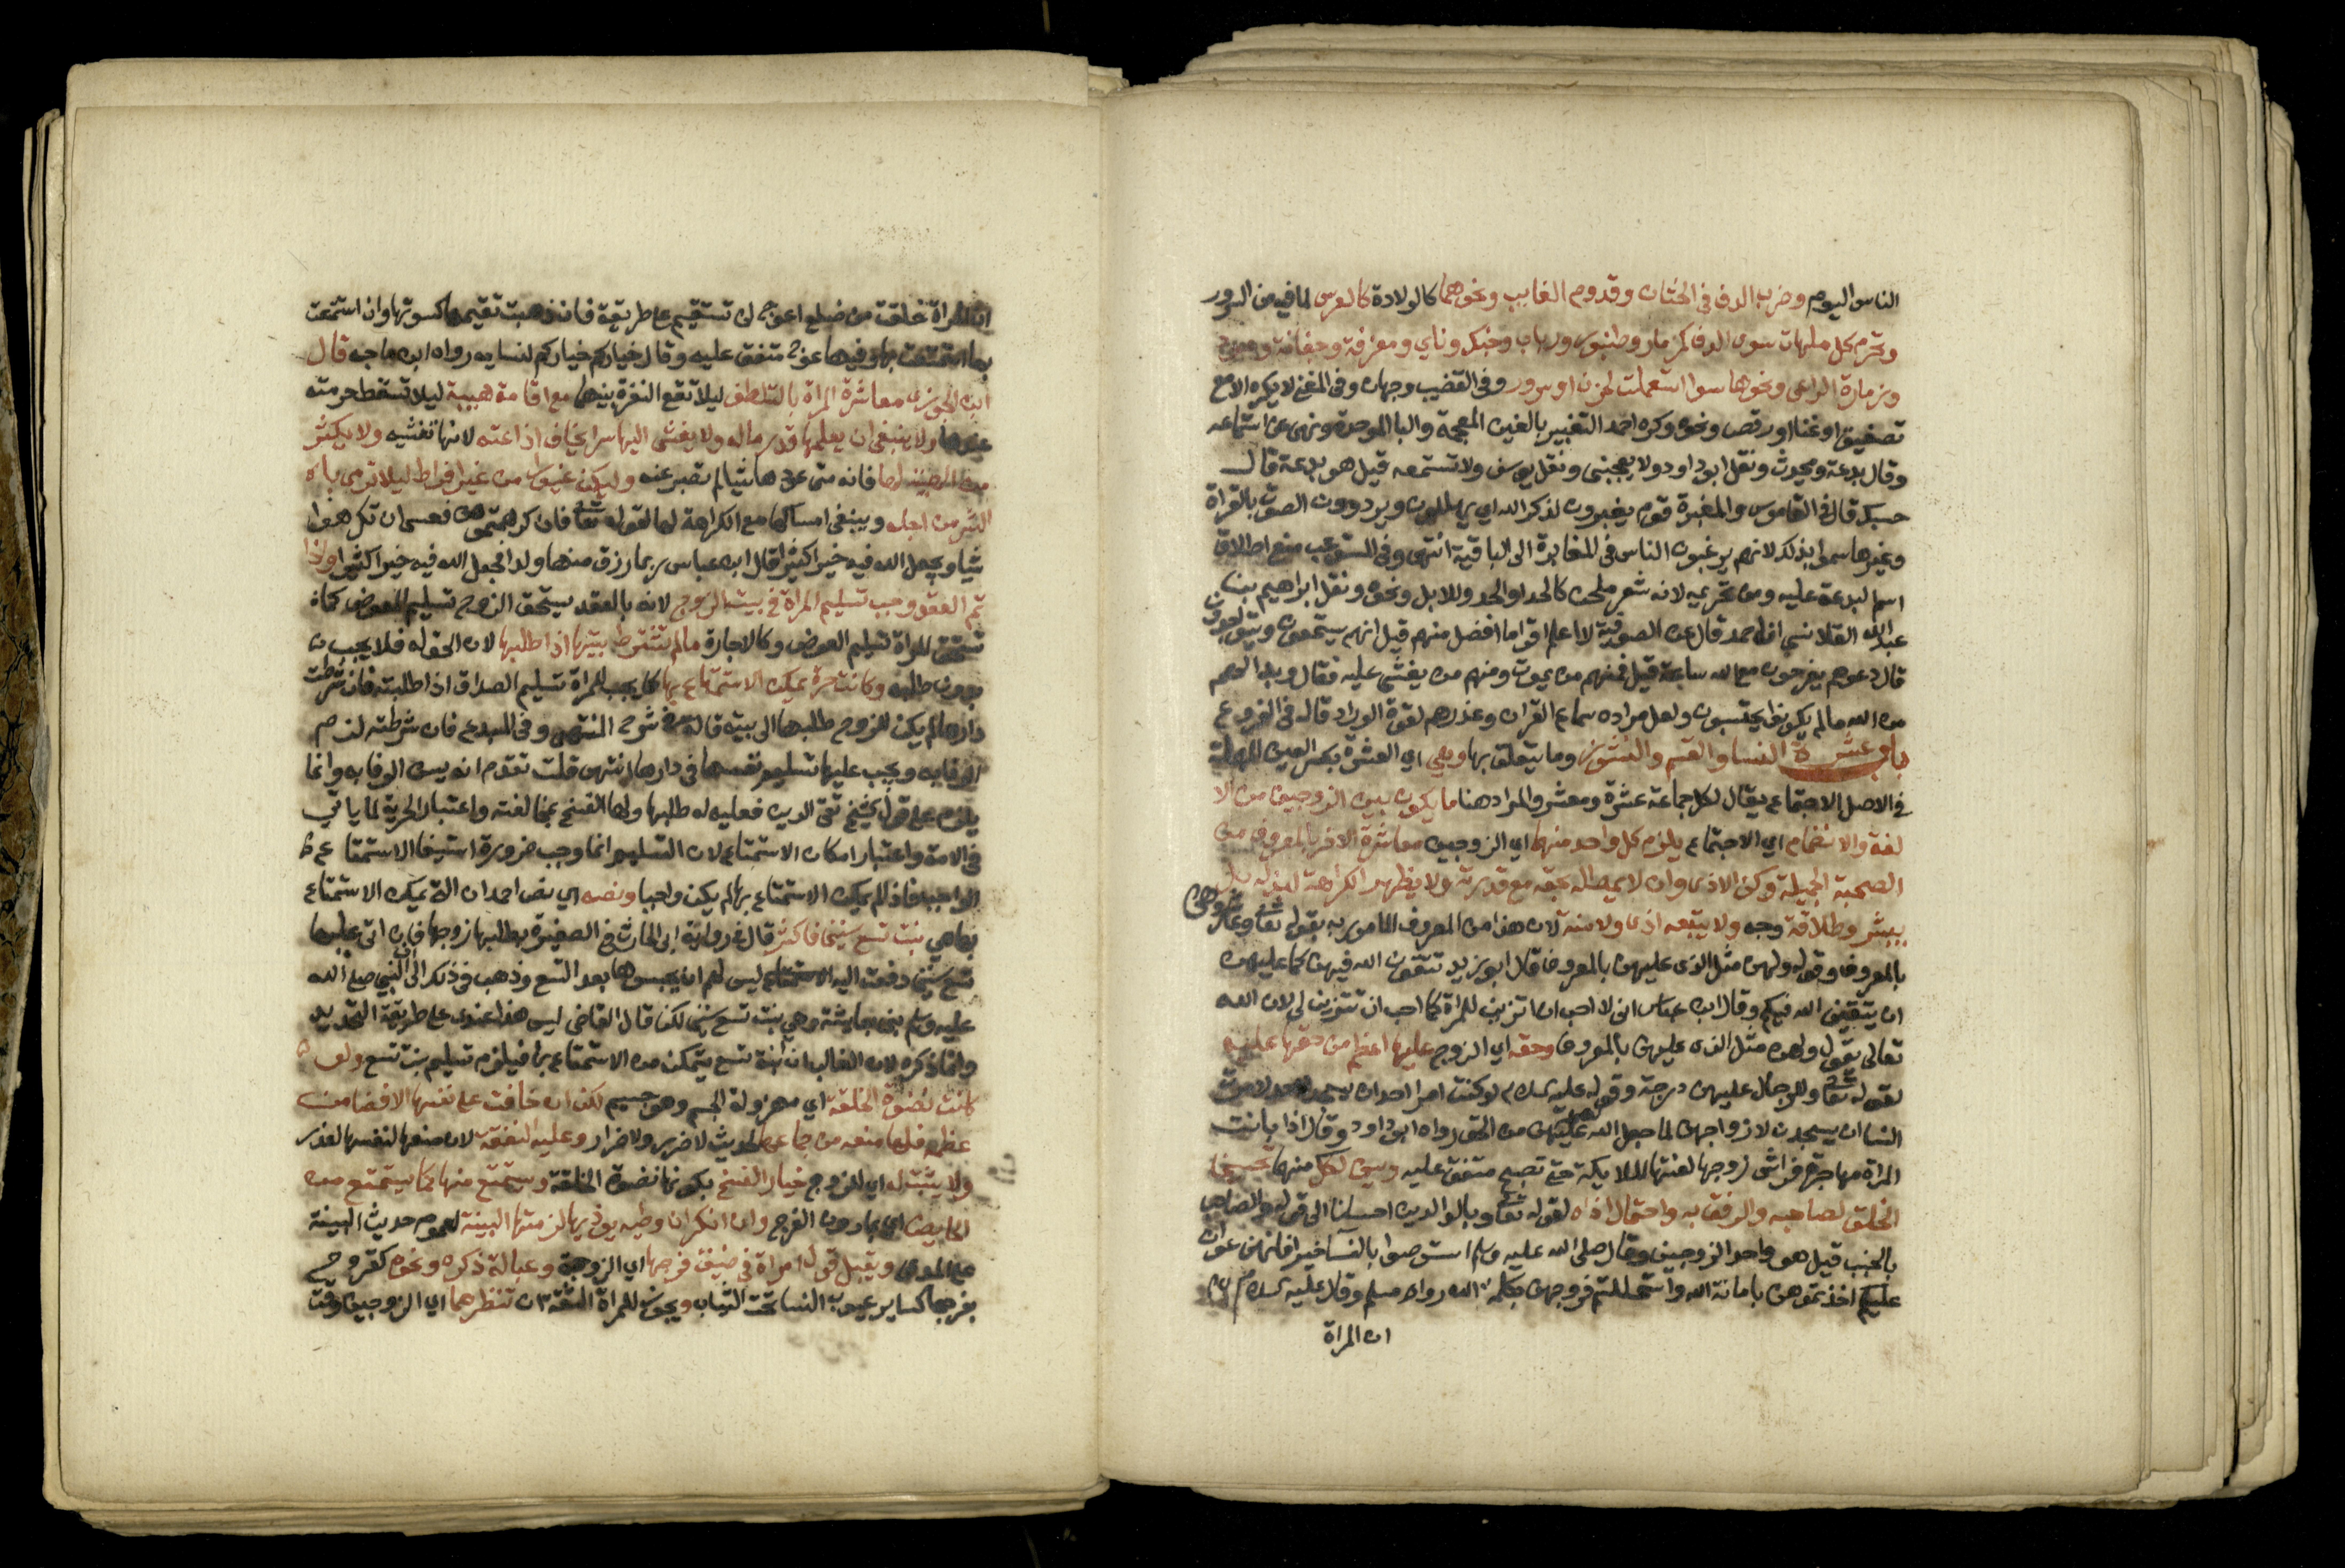 الناس اليوم وضرب الدف في الختان وقدوم الغايب ونحوهما كالولادة كالعرس لما فيه من السرور
وتحرم كل ملهاة سوى الدف كمزمار وطنبور ورباب وجنك وناي ومعزفة وجفانة وعود
وزمارة الراعي ونحوها سوا استعملت لحزن او سرور وفي القضيب وجهان وفي المغني لا يكره الا مع
تصفيق او غنا او رقص ونحوه وكره احمد التغبير بالغين المعجمة والبا الموحدة ونهى عن استماعه
وقال بدعة ومحدث ونقل ابو داود لا يعجبني ونقل يوسف ولا تستمعه قيل هو بدعة قال
حسبك قال في القاموس والمغبرة قوم يغبرون لذكر الله اي يهللون ويرددون الصوت بالقراة
وغيرها سموا بذلك لانهم يرغبون الناس في المغابرة الى الباقية انتهى وفي المستوعب منع اطلاق
اسم البدعة عليه ومن تحريمه لانه شعر ملحن كالحداو الحدو للابل ونحوه ونقل ابراهيم بن
عبد الله القلانسي ان احمد قال عن الصوفية لا اعلم اقواما افضل منهم قيل انهم يستمعون ويتواجدون
قال دعوهم يفرحون مع الله ساعة قيل فمنهم من يموت ومنهم من يغشى عليه فقال وبدا لهم
من الله مالم يكونوا يحتسبون ولعل مراده سماع القران وعذرهم لقوة الوارد قاله في الفروع
باب عشرة النسا والقسم والنشوز وما يتعلق بها وهي اي العشرة بكسر العين المهملة
في الاصل الاجتماع يقال لكل جماعة عشرة ومعشر والمراد هنا ما يكون بين الزوجين من الا
لفة والانضمام اي الاجتماع يلزم كل واحد منهما اي الزوجين معاشرة الاخر بالمعروف من
الصحبة الجميلة وكف الاذى وان لا يمطله بحقه مع قدرته ولا يظهر الكراهة لبذله بل
ببشر وطلاقة وجه ولا يتبعه اذى ولا منة لان هذا من المعروف المامور به بقوله تعا وعاشروهن
بالمعروف وقوله ولهن مثل الذي عليهن بالمعروف قال ابو زيد تتقون الله فيهن كما عليهن
ان يتقين الله فيكم وقال ابن عباس اني لا احب ان اتزين للمراة كما احب ان تتزين لي لان الله
تعالى يقول ولهن مثل الذي عليهن بالمعروف وحقه اي الزوج عليها اعظم من حقها عليه
لقوله تعا وللرجال عليهن درجة وقوله عليه السلام لو كنت امرا احدا ان يسجد لاحد لامرت
النسا ان يسجدن لازواجهن لما جعل الله لهم عليهن من الحق رواه ابو داود وقال اذا باتت
المراة مهاجرة فراش زوجها لعنتها الملايكة حتى تصبح متفق عليه وسن لكل منهما تحسين
الخلق لصاحبه والرفق به واحتمال اذاه لقوله تعا وبالوالدين احسانا الى قوله والصاحب
بالجنب قيل هو واحد الزوجين وقال صلى الله عليه وسلم استوصوا بالنسا خيرا فانهن عوان
عليكم اخذتموهن بامانة الله واستحللتم فروجهن بكلمة الله رواه مسلم وقال عليه السلام
ان المراة
ان المراة خلقت من ضلع اعوج لن تستقيم على طريقة فان ذهبت تقيمها كسرتها وان استمتعت
بها استمتعت بها وفيها عوج متفق عليه وقال خياركم خياركم لنسايه رواه ابن ماجه قال
ابن الجوزي معاشرة المراة بالتلطف ليلا تقع النفرة بينهما مع اقامة هيبة ليلا تسقط حرمته
عندها ولا ينبغي ان يعلمها قدر ماله ولا يفشي اليها سرا يخاف اذاعته لانها تفشيه ولا يكثر
من الهبة لها فانه متى عودها شيا لم تصبر عنه وليكن غيورا من غير افراط ليلا ترمى با
لشر من اجله وينبغي امساكها مع الكراهة لها لقوله تعا فان كرهتموهن فعسى ان تكرهوا
شيا ويجعل الله فيه خيرا كثيرا قال ابن عباس ربما رزق منها ولدا فجعل الله فيه خيرا كثيرا واذا
تم العقد وجب تسليم المراة في بيت الزوج لانه بالعقد يستحق الزوج تسليم المعوض كما
تستحق المراة تسليم العوض وكالاجارة مالم تشترط بيتها اذا طلبها لان الحق له فلا يجب
بدون طلبه وكانت حرة يمكن الاستمتاع بها كما يجب للمراة تسليم الصداق اذا طلبته فان شرطت
دارها لم يكن للزوج طلبها الى بيته قاله في شرح المنتهى وفي المبدع فان شرطته لزم
الوفا به ويجب عليها تسليم نفسها في دارها انتهى قلت تقدم انه يسن الوفا به وانما
يلزم على قول الشيخ تقي الدين فعليه له طلبها ولها الفسخ بمخالفته واعتبار الحرية لما ياتي
في الامة واعتبار امكان الاستمتاع لان التسليم انما وجب ضرورة استيفا الاستمتاع
الواجب فاذا لم يمكن الاستمتاع بها لم يكن واجبا ونصه اي نص احمد ان التي يمكن الاستمتاع
بها هي بنت تسع سنين فاكثر قال في رواية ابي الحارث في الصغيرة يطلبها زوجها فان اتى عليها
تسع سنين دفعت اليه ليس لهم ان يحبسوها بعد التسع وذهب في ذلك الى ان النبي صلى الله
عليه وسلم بنى بعايشة وهي بنت تسع سنين لكن قال القاضي ليس هذا عندي على طريقة التحديد
وانما ذكره لان الغالب ان ابنة تسع يتمكن من الاستمتاع بها فيلزم تسليم بنت تسع ولو
كانت نضوة الخلقة اي مهزولة الجسم وهو جسيم لكن ان خافت على نفسها الافضا من
عظمه فلها منعه من جماعها لحديث لا ضرر ولا ضرار وعليه النفقة لان منعها لنفسها لعذر
ولا يثبت له اي الزوج خيار الفسخ بكونها نضوة الخلقة ويستمتع منها كما يستمتع من
الحايض اي بما دون الفرج وان انكر ان وطيه يوذيها لزمتها البينة لعموم حديث البينة
على المدعي ويقبل قول امراة في ضيق فرجها اي الزوجة وعبالة ذكره ونحوه كقروح
بفرجها كساير عيوب النسا تحت الثياب ويجوز للمراة الثقة ان تنظرهما اي الزوجين وقت